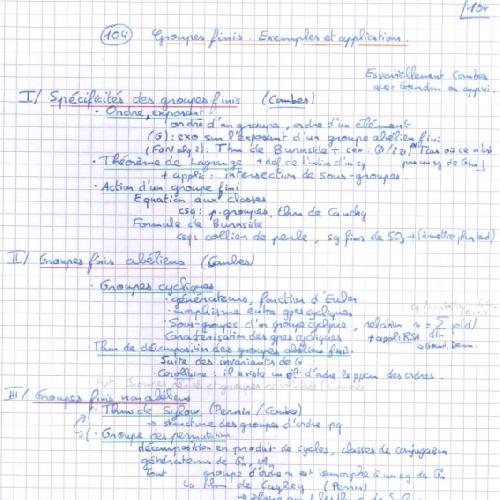 104
104 Groupes finis. Exemples et applications.
Essentiellement Combes
avec Gourdon en appui.
I/ Spécificités des groupes finis (Combes)
• Ordre, exposant
ordre d'un groupe, ordre d'un élément
(G): exo sur l'exposant d'un groupe abélien fini
Thm de Burnside
• Théorème de Lagrange + déf de l'indice d'un sg
+ applic: intersection de sous-groupes.
• Action d'un groupe fini
Equation aux classes
csq: p-groupes, thm de Cauchy
Formule de Burnside
csq: collier de perle, sg finis de SO3
II/ Groupes finis abéliens (Combes)
• Groupes cycliques
• générateurs, fonction d'Euler
• morphismes entre gpes cycliques
• Sous-groupes d'un groupe cyclique, relation n = Σ φ(d)
d|n
Caractérisation des gpes cycliques + appli RSA
Thm de décomposition des groupes abéliens finis.
Suite des invariants de G
Corollaire: il existe un élt d'ordre le ppcm des ordres.
III/ Groupes finis non abéliens
• Thms de Sylow (Perrin / Combes)
↳ structure des groupes d'ordre pq
• Groupe des permutations
décomposition en produit de cycles, classes de conjugaison
générateurs de
Tout groupe d'ordre n est isomorphe à un sg de
↳ thm de Cayley (Perrin)